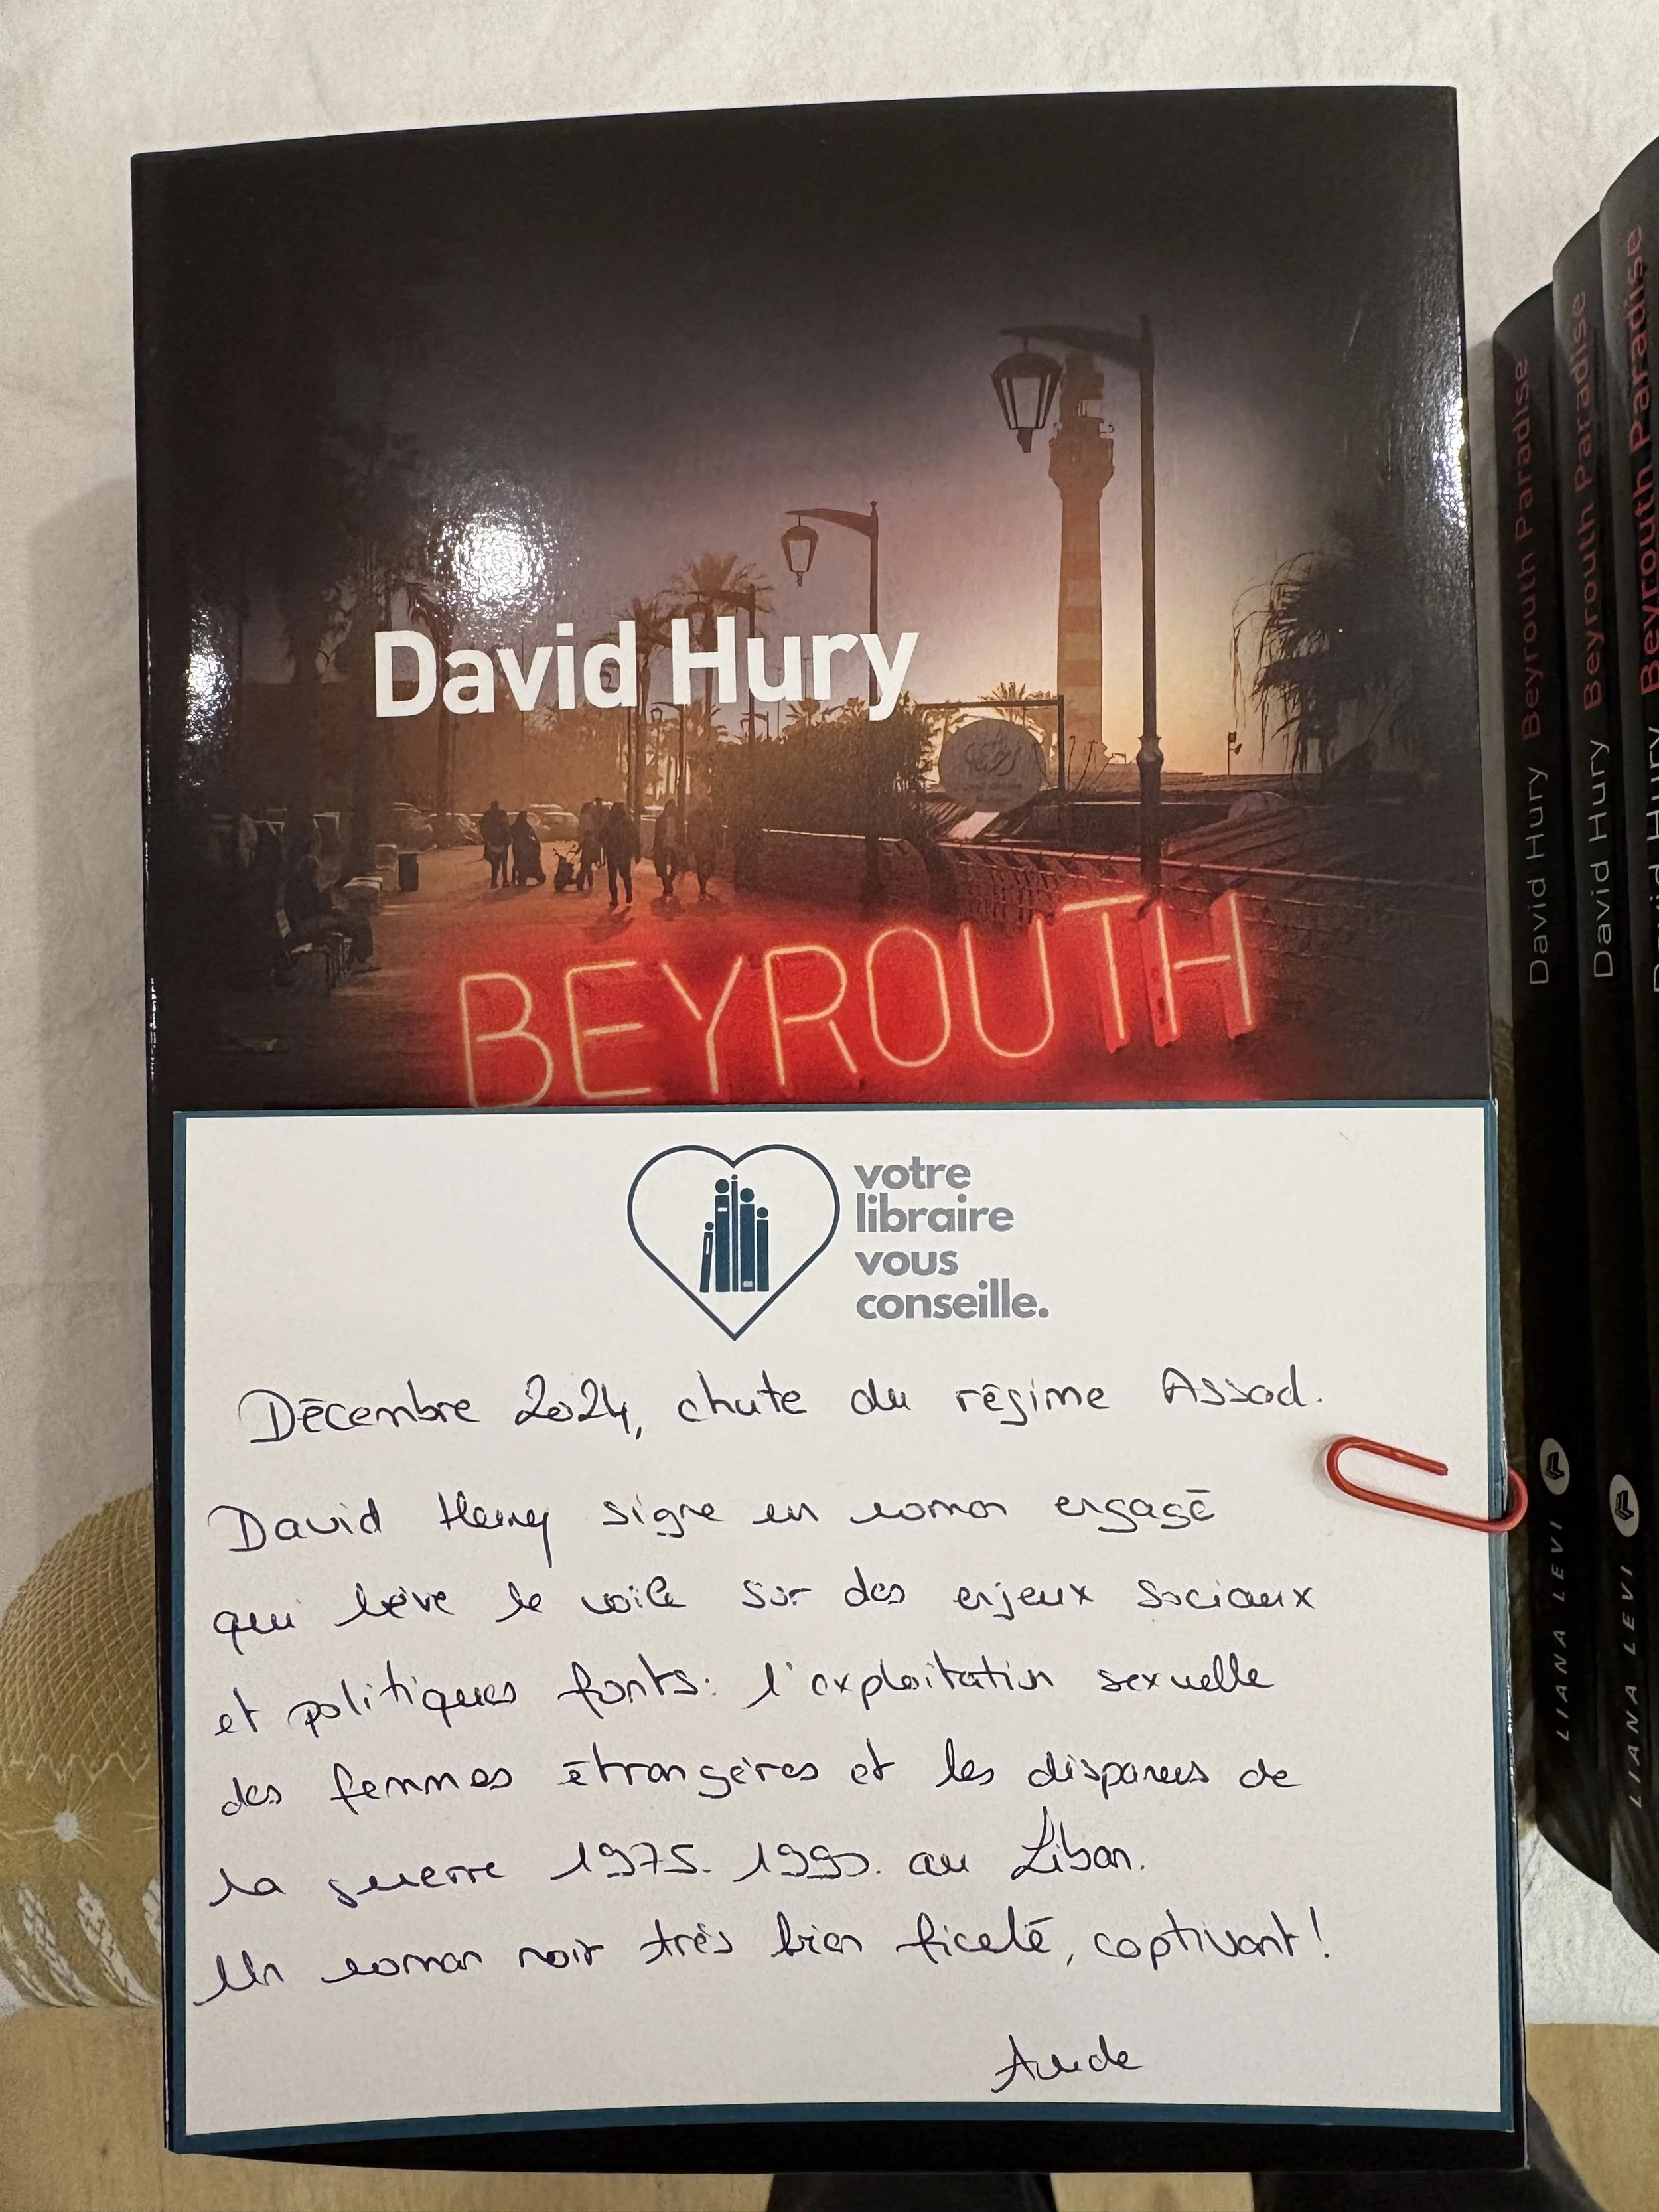 David Hury
BEYROUTH
votre
libraire
vous
conseille.
Décembre 2024, chute du régime Assad.
David Hury signe un roman engagé
qui lève le voile sur des enjeux sociaux
et politiques forts: l'exploitation sexuelle
des femmes étrangères et les disparus de
la guerre 1975-1990 au Liban.
Un roman noir très bien ficelé, captivant!
Aude
David Hury Beyrouth Paradise
LIANA LEVI
David Hury Beyrouth Paradise
LIANA LEVI
David Hury Beyrouth Paradise